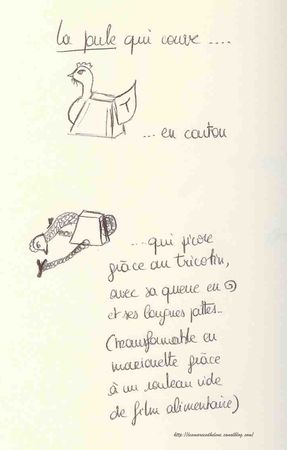 La poule qui couve ....
... en carton
... qui picore
grâce au tricotin,
avec sa queue en
et ses longues pattes..
(transformable en
marionette grâce
à un rouleau vide
de film alimentaire)